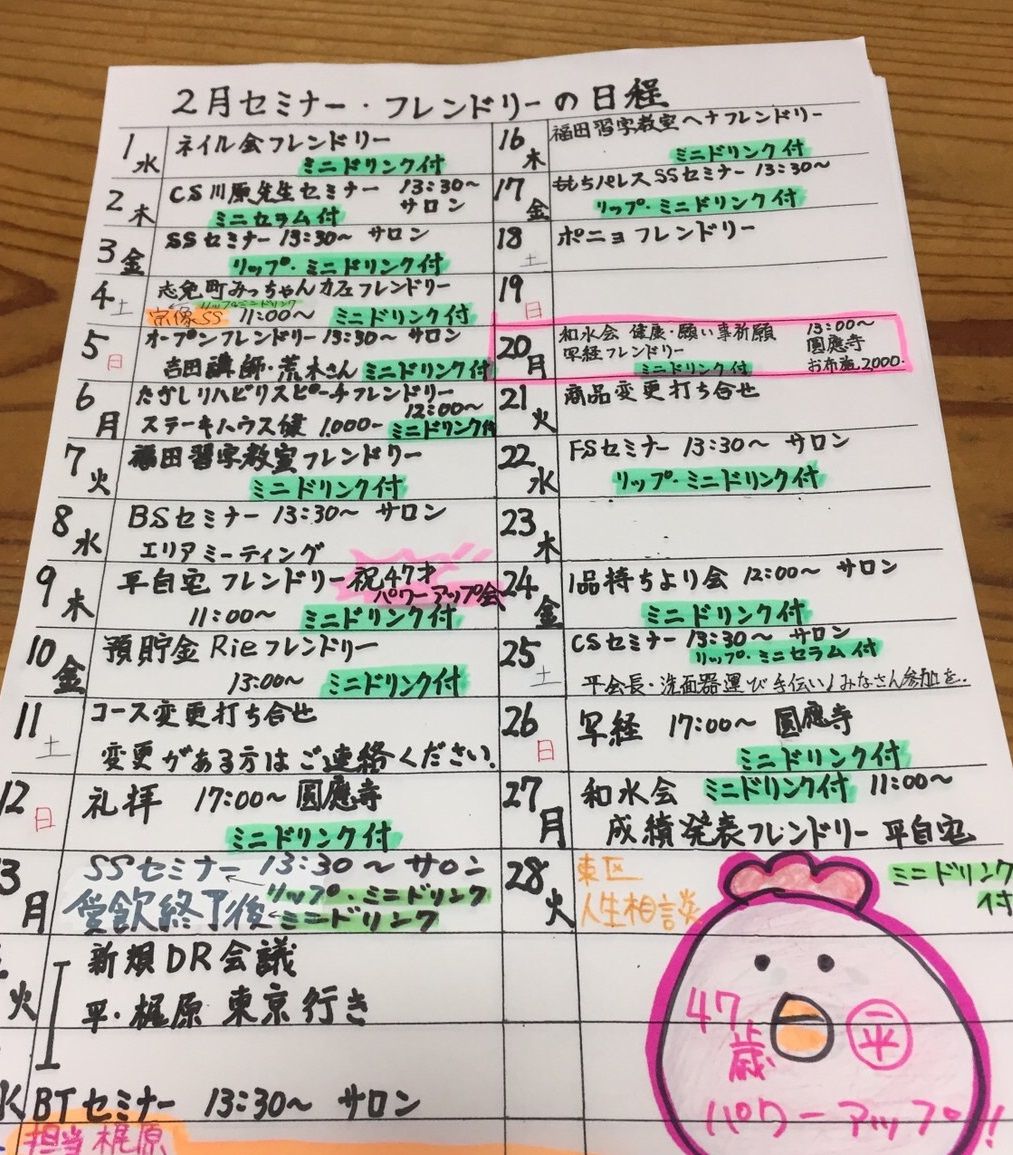 2月セミナー・フレンドリーの日程
1 水 ネイル会フレンドリー
ミニドリンク付
2 木 CS川原先生セミナー 13:30〜
ミニセラム付 サロン
3 金 SSセミナー 13:30〜 サロン
リップ・ミニドリンク付
4 土 志免町みっちゃんカフェフレンドリー
リップ&ミニドリンク
宗像SS 11:00〜 ミニドリンク付
5 日 オープンフレンドリー 13:30〜 サロン
吉田講師・荒木さん ミニドリンク付
6 月 たざしリハビリスピーチフレンドリー
12:00〜
ステーキハウス健 1,000- ミニドリンク付
7 火 福田習字教室フレンドリー
ミニドリンク付
8 水 BSセミナー 13:30〜 サロン
エリアミーティング
9 木 平自宅 フレンドリー 祝47才
パワーアップ会
11:00〜 ミニドリンク付
10 金 預貯金 Rieフレンドリー
13:00〜 ミニドリンク付
11 土 コース変更打ち合せ
変更がある方はご連絡ください。
12 日 礼拝 17:00〜 圓應寺
ミニドリンク付
3 月 SSセミナー 13:30〜 サロン
リップ・ミニドリンク
堂飲終了後 ←ミニドリンク
火 新規DR会議
平・梶原 東京行き
BTセミナー 13:30〜 サロン
担当 梶原
16 木 福田習字教室ヘナフレンドリー
ミニドリンク付
17 金 ももちパレスSSセミナー 13:30〜
リップ・ミニドリンク付
18 土 ポニョフレンドリー
19 日
20 月 和水会 健康・願い事祈願 13:00〜
写経フレンドリー 圓應寺
ミニドリンク付 お布施2,000.
21 火 商品変更打ち合せ
22 水 FSセミナー 13:30〜 サロン
リップ・ミニドリンク付
23 木
24 金 1品持ちより会 12:00〜 サロン
ミニドリンク付
25 土 CSセミナー 13:30〜 サロン
リップ・ミニセラム付
平会長・洗面器運び手伝い♪みなさん参加を..
26 日 写経 17:00〜 圓應寺
ミニドリンク付
27 月 和水会 ミニドリンク付 11:00〜
成績発表フレンドリー 平自宅
28 火 東区
人生相談
ミニドリンク
付
47
歳
平
パワーアップ!!